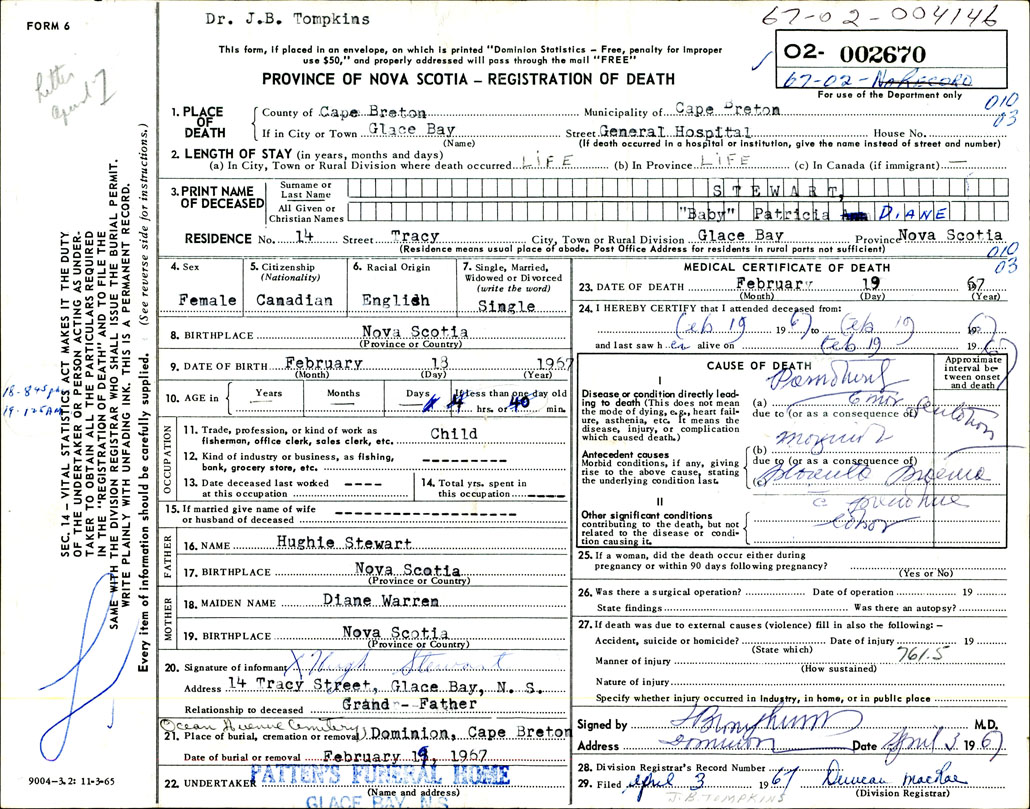 FORM 6
Dr. J.B. Tompkins
67-02-004146
This form, if placed in an envelope, on which is printed "Dominion Statistics – Free, penalty for improper
use $50," and properly addressed will pass through the mail "FREE"
02- 002670
67-02-
PROVINCE OF NOVA SCOTIA – REGISTRATION OF DEATH
For use of the Department only
010
03
Letter
1. PLACE OF DEATH
County of Cape Breton Municipality of Cape Breton
If in City or Town Glace Bay Street General Hospital House No.
(Name) (If death occurred in a hospital or institution, give the name instead of street and number)
2. LENGTH OF STAY (in years, months and days)
(a) In City, Town or Rural Division where death occurred LIFE (b) In Province LIFE (c) In Canada (if immigrant) —
3. PRINT NAME OF DECEASED
Surname or Last Name STEWART,
All Given or Christian Names "Baby" Patricia Ann DIANE
RESIDENCE No. 14 Street Tracy City, Town or Rural Division Glace Bay Province Nova Scotia
(Residence means usual place of abode. Post Office Address for residents in rural parts not sufficient)
010
03
4. Sex
Female
5. Citizenship
(Nationality)
Canadian
6. Racial Origin
English
7. Single, Married,
Widowed or Divorced
(write the word)
Single
8. BIRTHPLACE Nova Scotia
(Province or Country)
9. DATE OF BIRTH February 18 1967
(Month) (Day) (Year)
10. AGE in Years Months Days If less than one day old
4 hrs. or 40 min.
OCCUPATION
11. Trade, profession, or kind of work as
fisherman, office clerk, sales clerk, etc. Child
12. Kind of industry or business, as fishing,
bank, grocery store, etc. ---------
13. Date deceased last worked
at this occupation ----
14. Total yrs. spent in
this occupation ----
15. If married give name of wife
or husband of deceased ----------
FATHER
16. NAME Hughie Stewart
17. BIRTHPLACE Nova Scotia
(Province or Country)
MOTHER
18. MAIDEN NAME Diane Warren
19. BIRTHPLACE Nova Scotia
(Province or Country)
20. Signature of informant X Hugh Stewart
Address 14 Tracy Street, Glace Bay, N. S.
Relationship to deceased Grand - Father
Ocean Avenue Cemetery
21. Place of burial, cremation or removal Dominion, Cape Breton
Date of burial or removal February 19, 1967
22. UNDERTAKER PATTEN'S FUNERAL HOME
(Name and address)
GLACE BAY, N.S.
MEDICAL CERTIFICATE OF DEATH
23. DATE OF DEATH February 19 67
(Month) (Day) (Year)
24. I HEREBY CERTIFY that I attended deceased from:
Feb 19 1967 to Feb 19 1967
and last saw h er alive on Feb 19 1967
CAUSE OF DEATH
Approximate
interval be-
tween onset
and death
I
Disease or condition directly lead-
ing to death (This does not mean
the mode of dying, e.g., heart fail-
ure, asthenia, etc. It means the
disease, injury, or complication
which caused death.)
(a)
due to (or as a consequence of)
(b)
due to (or as a consequence of)
(c)
Antecedent causes
Morbid conditions, if any, giving
rise to the above cause, stating
the underlying condition last.
II
Other significant conditions
contributing to the death, but not
related to the disease or condi-
tion causing it.
25. If a woman, did the death occur either during
pregnancy or within 90 days following pregnancy?
(Yes or No)
26. Was there a surgical operation? Date of operation 19
State findings Was there an autopsy?
27. If death was due to external causes (violence) fill in also the following: –
Accident, suicide or homicide? Date of injury 19
(State which) 761.5
Manner of injury
(How sustained)
Nature of injury
Specify whether injury occurred in Industry, in home, or in public place
Signed by M.D.
Address Dominion Date April 3 1967
28. Division Registrar's Record Number
29. Filed April 3 1967 Duncan MacRae
(Division Registrar)
J.B. TOMPKINS
SEC. 14 – VITAL STATISTICS ACT MAKES IT THE DUTY
OF THE UNDERTAKER OR PERSON ACTING AS UNDER-
TAKER TO OBTAIN ALL THE PARTICULARS REQUIRED
IN THE "REGISTRATION OF DEATH" AND TO FILE THE
SAME WITH THE DIVISION REGISTRAR WHO SHALL ISSUE THE BURIAL PERMIT.
WRITE PLAINLY WITH UNFADING INK. THIS IS A PERMANENT RECORD.
Every item of information should be carefully supplied. (See reverse side for instructions.)
18-8 45 pm
19-1 25 AM
9004-3.2: 11-3-65